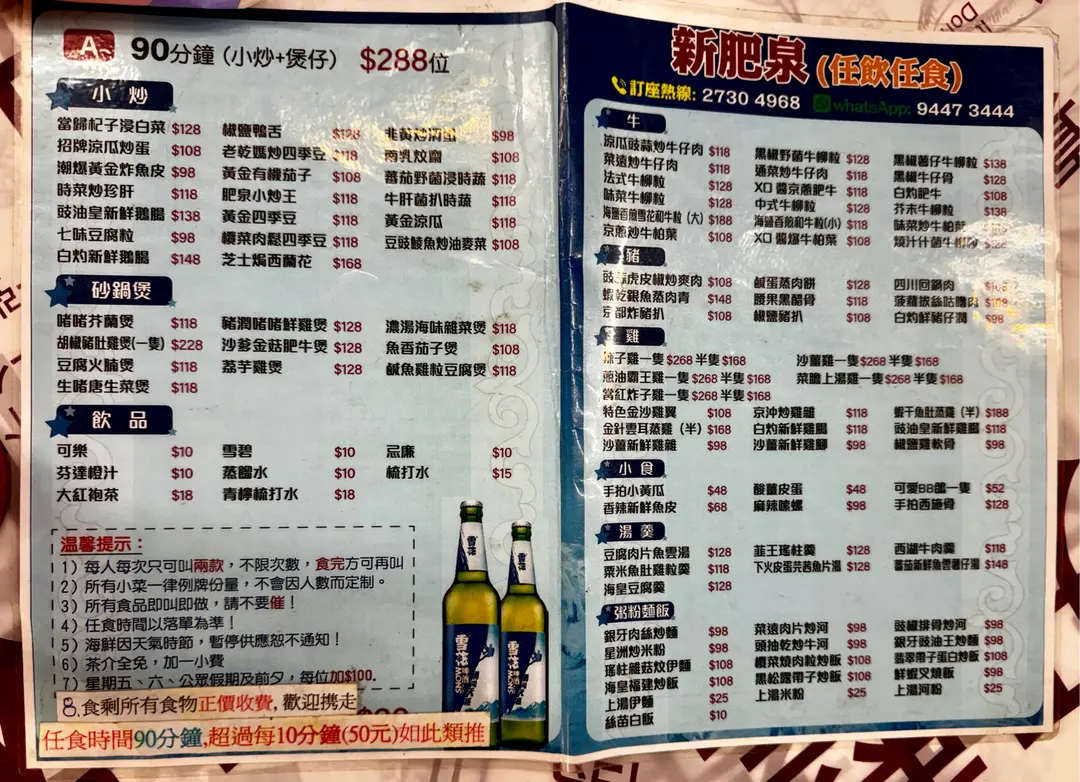 A 90分鐘（小炒+煲仔） $288位
小 炒
當歸杞子浸白菜 $128 椒鹽鴨舌 $128 韭黃炒滑蛋 $98
招牌涼瓜炒蛋 $108 老乾媽炒四季豆 $118 南乳炆齋 $108
潮爆黃金炸魚皮 $98 黃金有機茄子 $108 蕃茄野菌浸時蔬 $118
時菜炒珍肝 $118 肥泉小炒王 $118 牛肝菌扒時蔬 $118
豉油皇新鮮鵝腸 $138 黃金四季豆 $118 黃金涼瓜 $118
七味豆腐粒 $98 欖菜肉鬆四季豆 $118 豆豉鯪魚炒油麥菜 $108
白灼新鮮鵝腸 $148 芝士焗西蘭花 $168
砂鍋煲
啫啫芥蘭煲 $118 豬潤啫啫鮮雞煲 $128 濃湯海味雜菜煲 $118
胡椒豬肚雞煲(一隻) $228 沙爹金菇肥牛煲 $128 魚香茄子煲 $108
豆腐火腩煲 $118 荔芋雞煲 $128 鹹魚雞粒豆腐煲 $118
生啫唐生菜煲 $118
飲 品
可樂 $10 雪碧 $10 忌廉 $10
芬達橙汁 $10 蒸餾水 $10 梳打水 $15
大紅袍茶 $18 青檸梳打水 $18
溫馨提示：
1）每人每次只可叫兩款，不限次數，食完方可再叫
2）所有小菜一律例牌份量，不會因人數而定制。
3）所有食品即叫即做，請不要催！
4）任食時間以落單為準！
5）海鮮因天氣時節，暫停供應恕不通知！
6）茶介全免，加一小費
7）星期五、六、公眾假期及前夕，每位加$100.
8.食剩所有食物正價收費, 歡迎携走
任食時間90分鐘,超過每10分鐘(50元)如此類推
雪花
啤酒
新肥泉（任飲任食）
訂座熱線: 2730 4968 whatsApp: 9447 3444
牛
涼瓜豉蒜炒牛仔肉 $118 黑椒野菌牛柳粒 $128 黑椒薯仔牛柳粒 $138
菜遠炒牛仔肉 $118 通菜炒牛仔肉 $118 黑椒牛仔骨 $128
法式牛柳粒 $128 XO醬京蔥肥牛 $118 白灼肥牛 $108
味菜牛柳粒 $128 中式牛柳粒 $128 芥末牛柳粒 $138
海鹽香煎雪花和牛粒（大） $188 海鹽香煎和牛粒(小) $118 味菜炒牛柏葉
京蔥炒牛柏葉 $108 XO醬爆牛柏葉 $108 燒汁什菌牛柳粒 $128
豬
豉蒜虎皮椒炒爽肉 $108 鹹蛋蒸肉餅 $128 四川回鍋肉
蝦乾銀魚蒸肉青 $148 腰果黑醋骨 $118 菠蘿拔絲咕嚕肉 $108
京都炸豬扒 $108 椒鹽豬扒 $108 白灼鮮豬仔潤 $98
雞
辣子雞一隻$268 半隻$168 沙薑雞一隻$268 半隻$168
蔥油霸王雞一隻$268 半隻$168 菜膽上湯雞一隻$268 半隻$168
當紅炸子雞一隻$268 半隻$168
特色金沙雞翼 $108 京沖炒雞雜 $118 蝦干魚肚蒸雞（半） $188
金針雲耳蒸雞（半） $168 白灼新鮮雞腸 $118 豉油皇新鮮雞腸 $118
沙薑新鮮雞雜 $98 沙薑新鮮雞腳 $98 椒鹽雞軟骨 $98
小 食
手拍小黃瓜 $48 酸薑皮蛋 $48 可愛BB鴿一隻 $52
香辣新鮮魚皮 $68 麻辣螺 $98 手拍西施骨 $128
湯 羹
豆腐肉片魚雲湯 $128 韮王瑤柱羹 $128 西湖牛肉羹 $118
粟米魚肚雞粒羹 $118 下火皮蛋芫茜魚片湯 $128 蕃茄新鮮魚雲薯仔湯 $148
海皇豆腐羹 $128
粥粉麵飯
銀牙肉絲炒麵 $98 菜遠肉片炒河 $98 豉椒排骨炒河 $98
星洲炒米粉 $98 頭抽乾炒牛河 $98 銀牙豉油王炒麵 $98
瑤柱雜菇炆伊麵 $108 欖菜燒肉粒炒飯 $108 翡翠帶子蛋白炒飯 $108
海皇福建炒飯 $108 黑松露帶子炒飯 $108 鮮蝦叉燒飯 $98
上湯伊麵 $25 上湯米粉 $25 上湯河粉 $25
絲苗白飯 $10